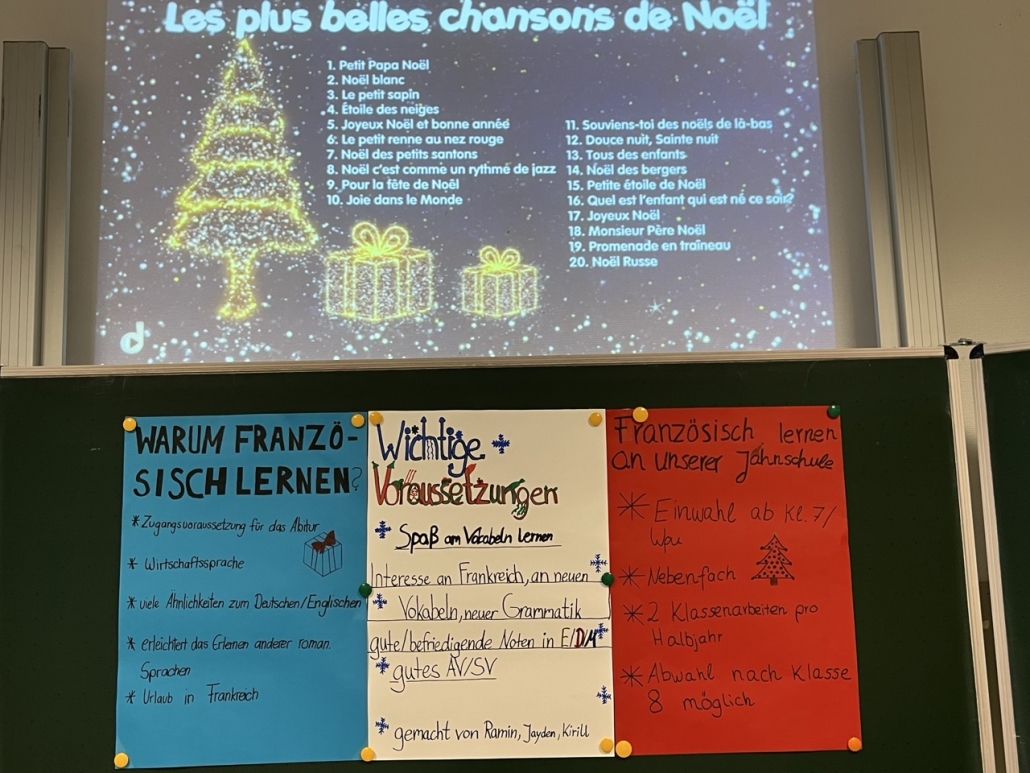 Les plus belles chansons de Noël
1. Petit Papa Noël
2. Noël blanc
3. Le petit sapin
4. Étoile des neiges
5. Joyeux Noël et bonne année
6. Le petit renne au nez rouge
7. Noël des petits santons
8. Noël c'est comme un rythme de jazz
9. Pour la fête de Noël
10. Joie dans le Monde
11. Souviens-toi des noëls de là-bas
12. Douce nuit, Sainte nuit
13. Tous des enfants
14. Noël des bergers
15. Petite étoile de Noël
16. Quel est l'enfant qui est né ce soir?
17. Joyeux Noël
18. Monsieur Père Noël
19. Promenade en traîneau
20. Noël Russe
d
WARUM FRANZÖ-
SISCH LERNEN?
* Zugangsvoraussetzung für das Abitur
* Wirtschaftssprache
* viele Ähnlichkeiten zum Deutschen/Englischen
* erleichtert das Erlernen anderer roman.
Sprachen
* Urlaub in Frankreich
Wichtige
Voraussetzungen
Spaß am Vokabeln lernen
Interesse an Frankreich, an neuen
Vokabeln, neuer Grammatik
gute/befriedigende Noten in E/D/M
gutes AV/SV
gemacht von Ramin, Jayden, Kirill
Französisch lernen
an unserer Jahnschule
* Einwahl ab Kl. 7/
Wpu
* Nebenfach
* 2 Klassenarbeiten pro
Halbjahr
* Abwahl nach Klasse
8 möglich